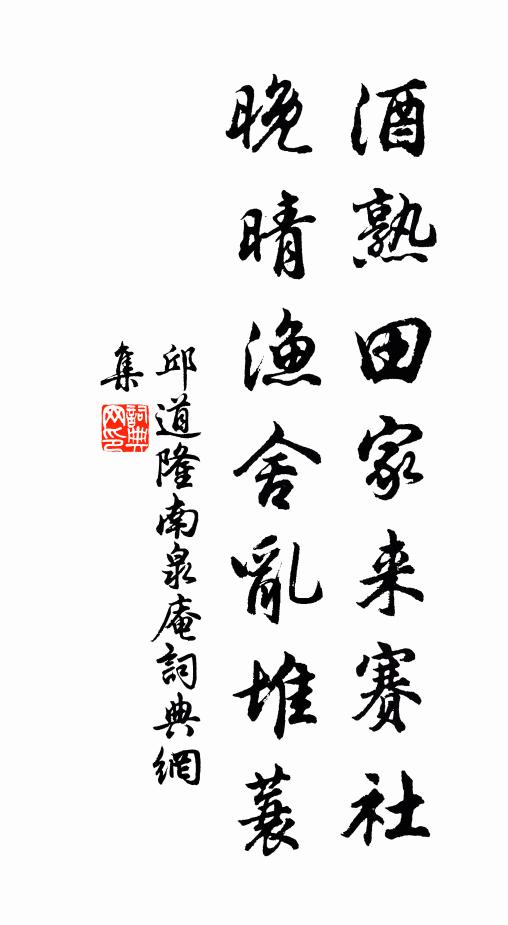 酒熟田家来赛社
晚晴渔舍亂堆蓑
邱道隆南泉庵詞典網
集
詞典网印